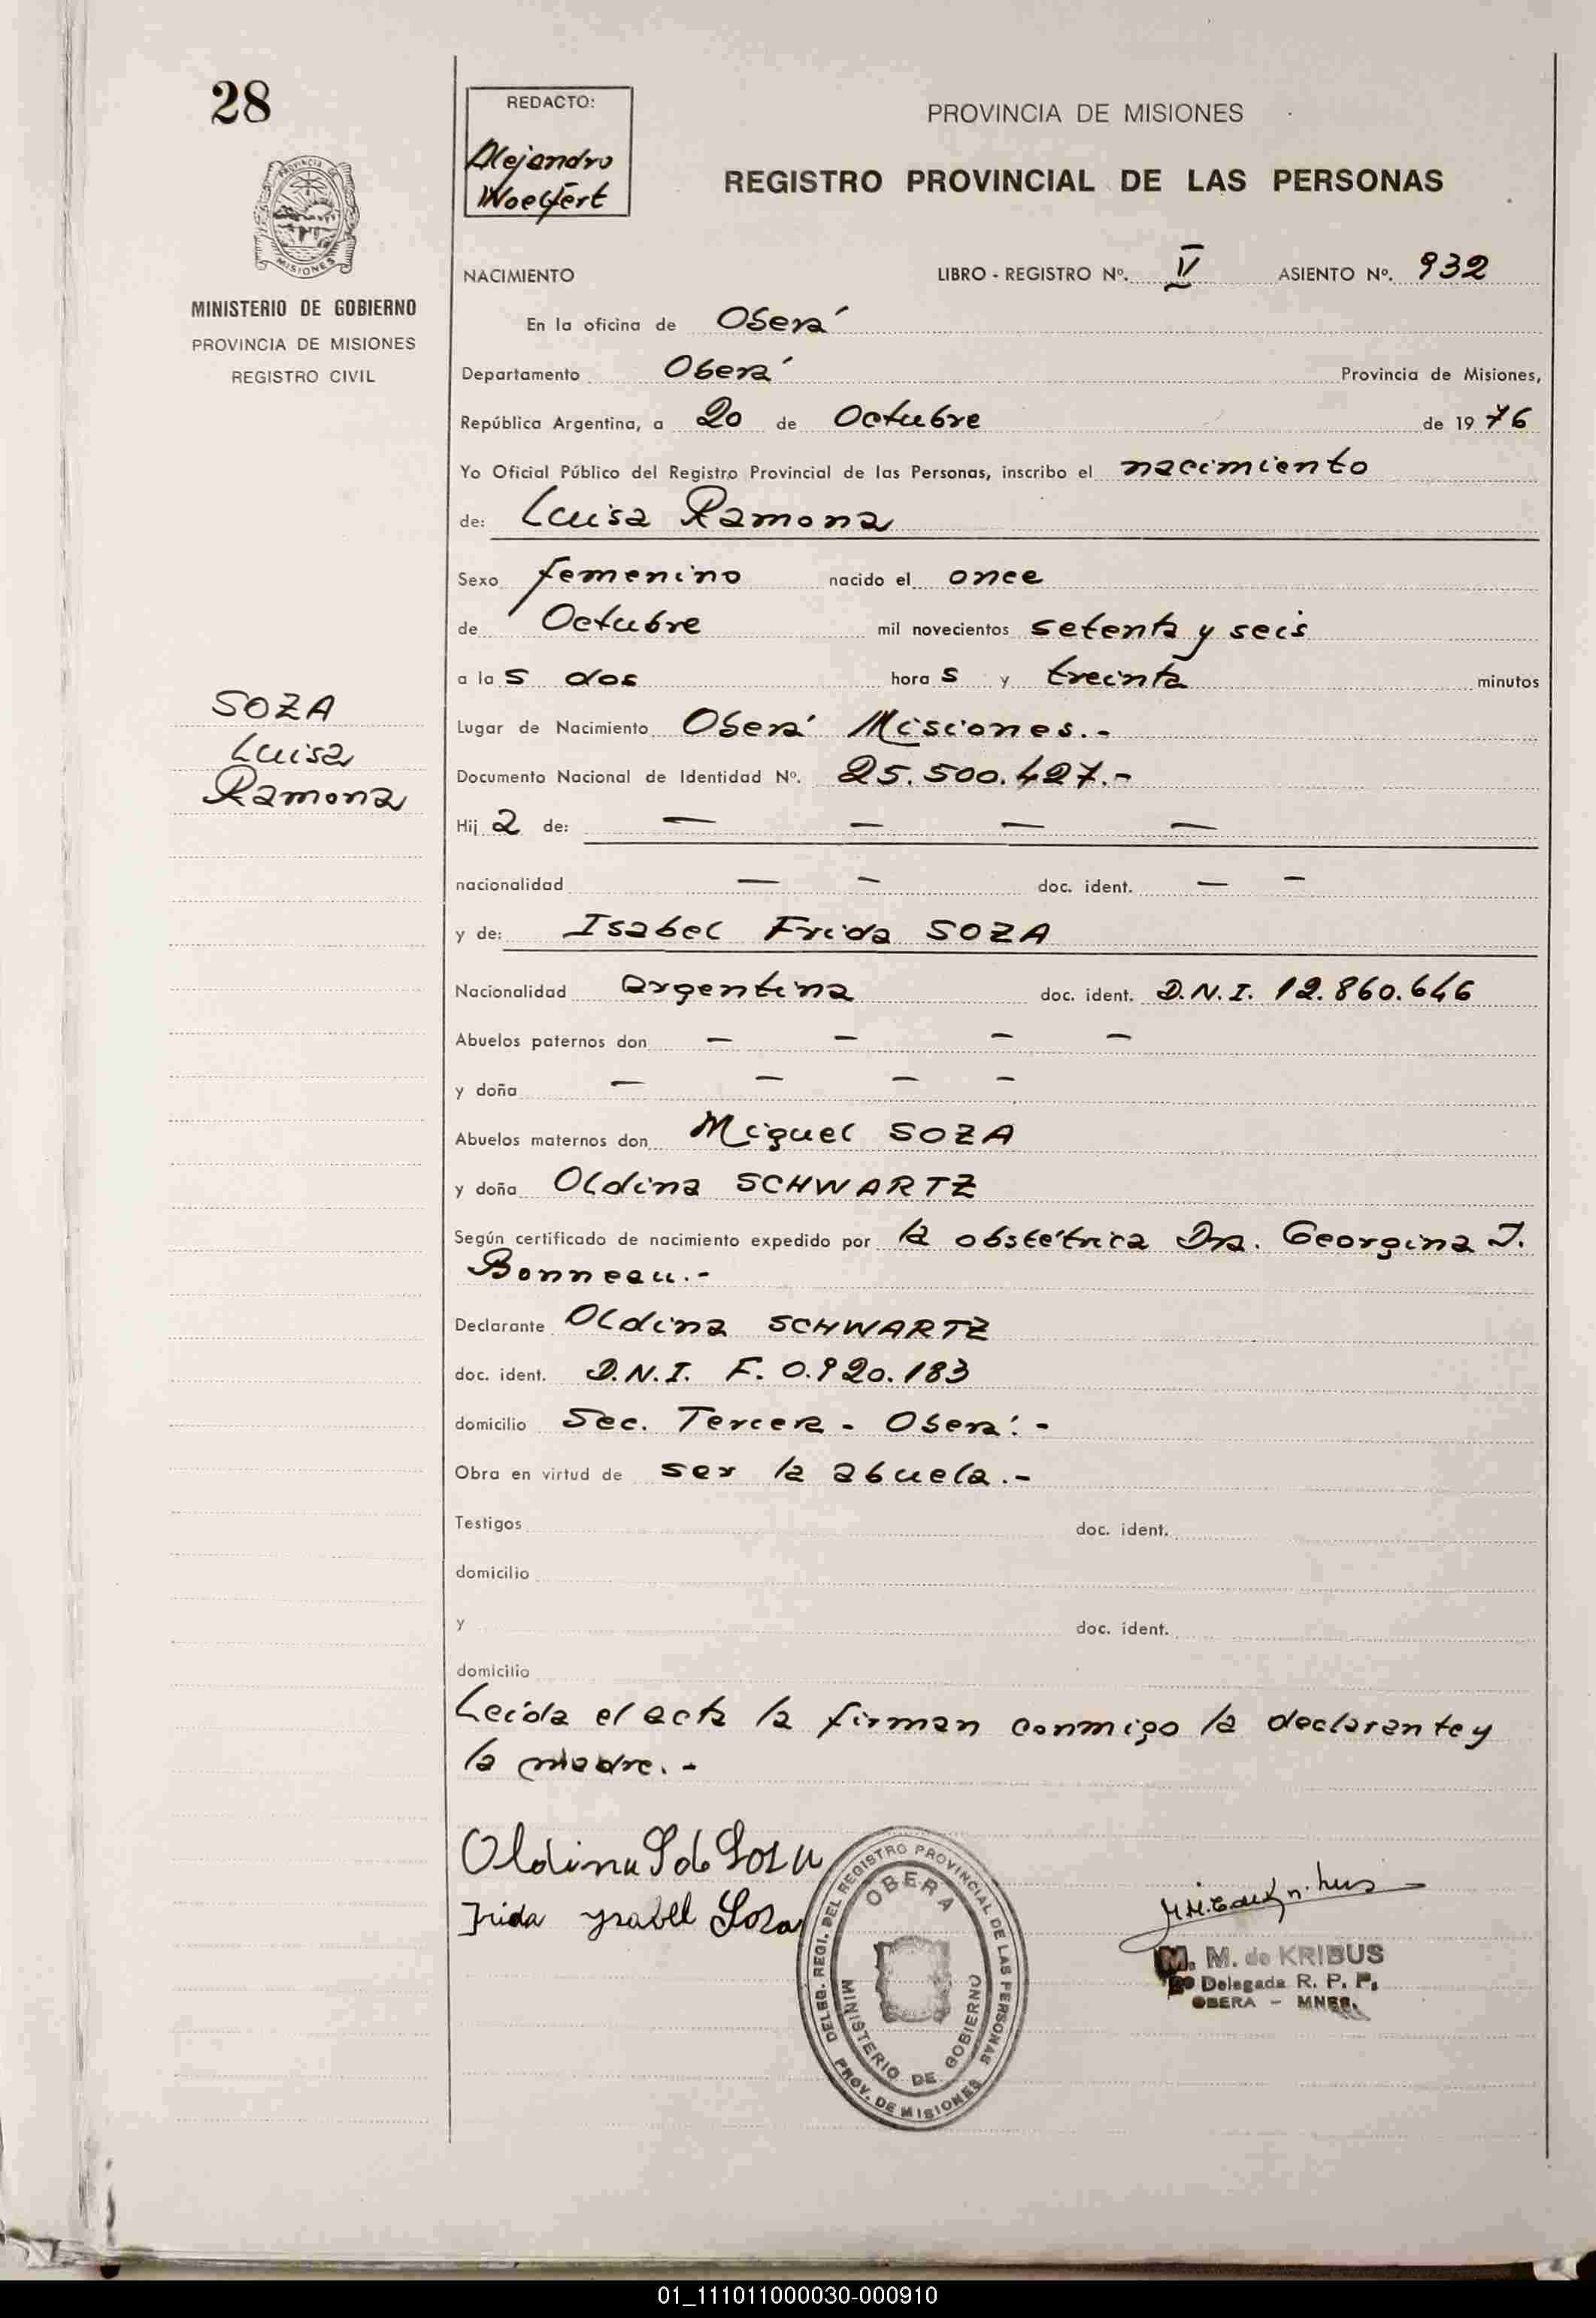 28
PROVINCIA DE
MISIONES
MINISTERIO DE GOBIERNO
PROVINCIA DE MISIONES
REGISTRO CIVIL
SOZA
Luisa
Ramona
REDACTO:
Alejandro
Woelfert
PROVINCIA DE MISIONES
REGISTRO PROVINCIAL DE LAS PERSONAS
NACIMIENTO LIBRO - REGISTRO Nº. V ASIENTO Nº. 932
En la oficina de Oberá
Departamento Oberá Provincia de Misiones,
República Argentina, a 20 de Octubre de 19 76
Yo Oficial Público del Registro Provincial de las Personas, inscribo el nacimiento
de: Luisa Ramona
Sexo femenino nacido el once
de Octubre mil novecientos setenta y seis
a la s dos hora s y treinta minutos
Lugar de Nacimiento Oberá Misiones.-
Documento Nacional de Identidad Nº. 25.500.427.-
Hij a de: — — — —
nacionalidad — — doc. ident. — —
y de: Isabel Frida SOZA
Nacionalidad argentina doc. ident. D.N.I. 12.860.646
Abuelos paternos don — — — —
y doña — — — —
Abuelos maternos don Miguel SOZA
y doña Oldina SCHWARTZ
Según certificado de nacimiento expedido por la obstétrica Dra. Georgina J.
Bonneau.-
Declarante Oldina SCHWARTZ
doc. ident. D.N.I. F. 0.920.183
domicilio Sec. Tercera - Oberá.-
Obra en virtud de ser la abuela.-
Testigos doc. ident.
domicilio
y doc. ident.
domicilio
Leída el acta la firman conmigo la declarante y
la madre.-
Oldina S de Soza
Frida Ysabel Soza
DELEG. REGI. DEL REGISTRO PROVINCIAL DE LAS PERSONAS
OBERA
MINISTERIO DE GOBIERNO
PROV. DE MISIONES
M. M. de KRIBUS
2º Delegada R. P. P.
OBERA - MNES.
01_111011000030-000910